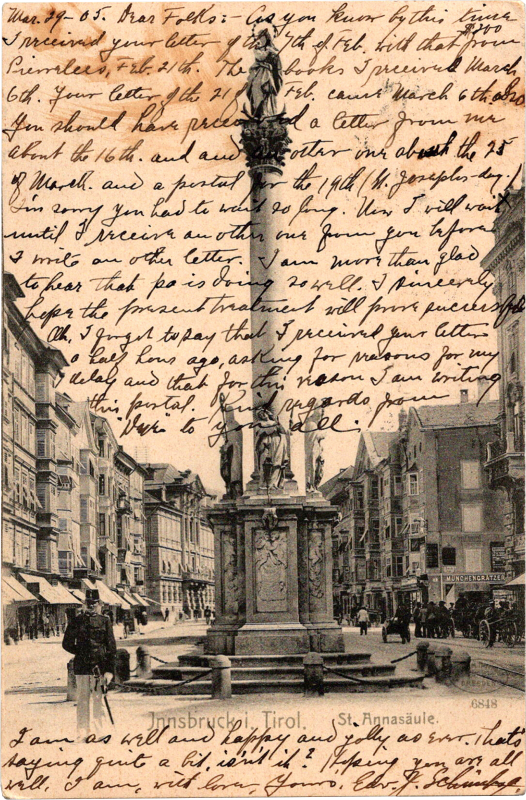 Mar. 29-05. Dear Folks:- As you know by this time
I received your letter of the 7th of Feb. with that from
Feb. 21th. The books I received March
6th. Your letter of the 21 Feb. came March 6th also
You should have received a letter from me
about the 16th. and another one about the 25
of March. and a postal for the 19th (St. Josephs-day.)
I'm sorry you had to wait so long. Now I will wait
until I receive an other one from you before
I write an other letter. I am more than glad
to hear that pa is doing so well. I sincerely
hope the present treatment will prove successful
Oh, I forgot to say that I received your letter
a half hour ago, asking for reasons for my
delay and that for this reason I am writing
this postal. Kind regards from
to you all.
MÜNCHENGRÄTZER
6848
Innsbruck i. Tirol. St. Annasäule.
I am as well and happy and jolly as ever. that's
saying quite a bit, isn't it? Hoping you are all
well, I am, with love, Yours, Edw. F.